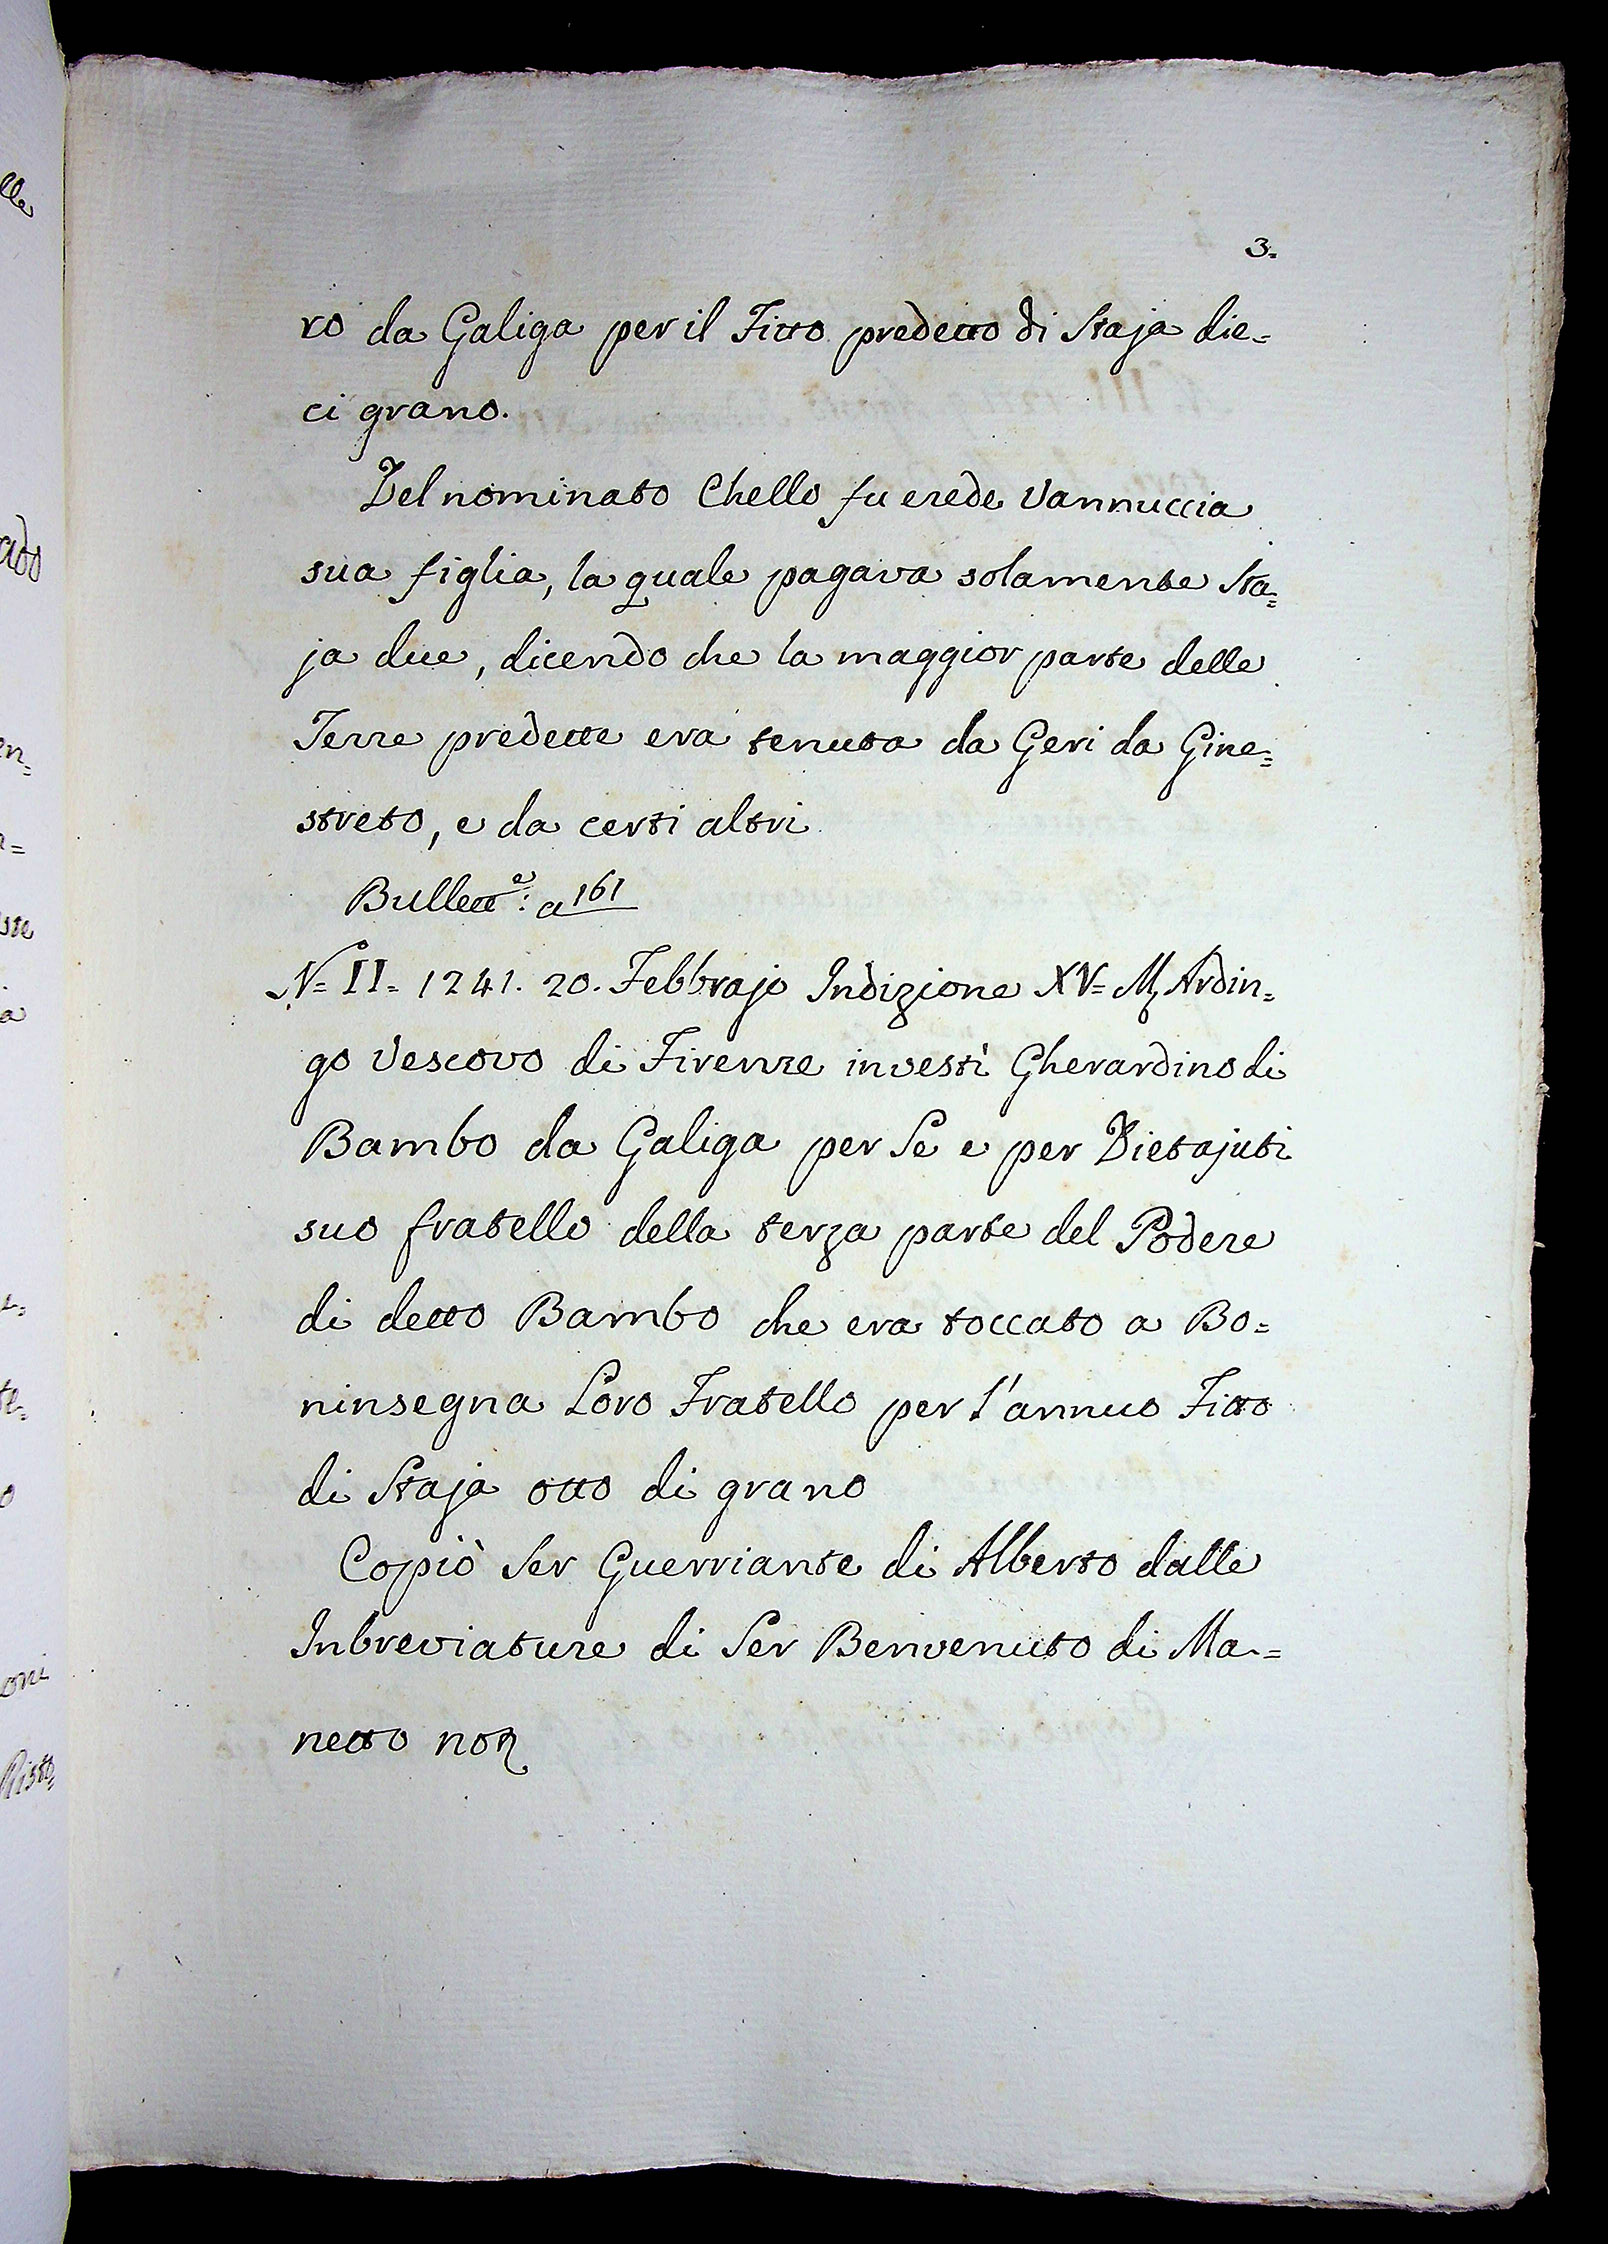 3.
ro da Galiga per il Fitto predetto di Staja die=
ci grano.
Del nominato Chello fu erede Vannuccia
sua figlia, la quale pagava solamente Sta=
ja due, dicendo che la maggior parte delle
Terre predette era tenuta da Geri da Gine=
streto, e da certi altri
Bullett.e: a 161
N.o II= 1241. 20. Febbrajo Indizione XV= M, Ardin=
go Vescovo di Firenze investì Gherardino di
Bambo da Galiga per Se e per Dietajuti
suo fratello della terza parte del Podere
di detto Bambo che era toccato a Bo=
ninsegna Loro Fratello per l'annuo Fitto
di Staja otto di grano
Copiò Ser Guerriante di Alberto dalle
Inbreviature di Ser Benvenuto di Ma=
netto not